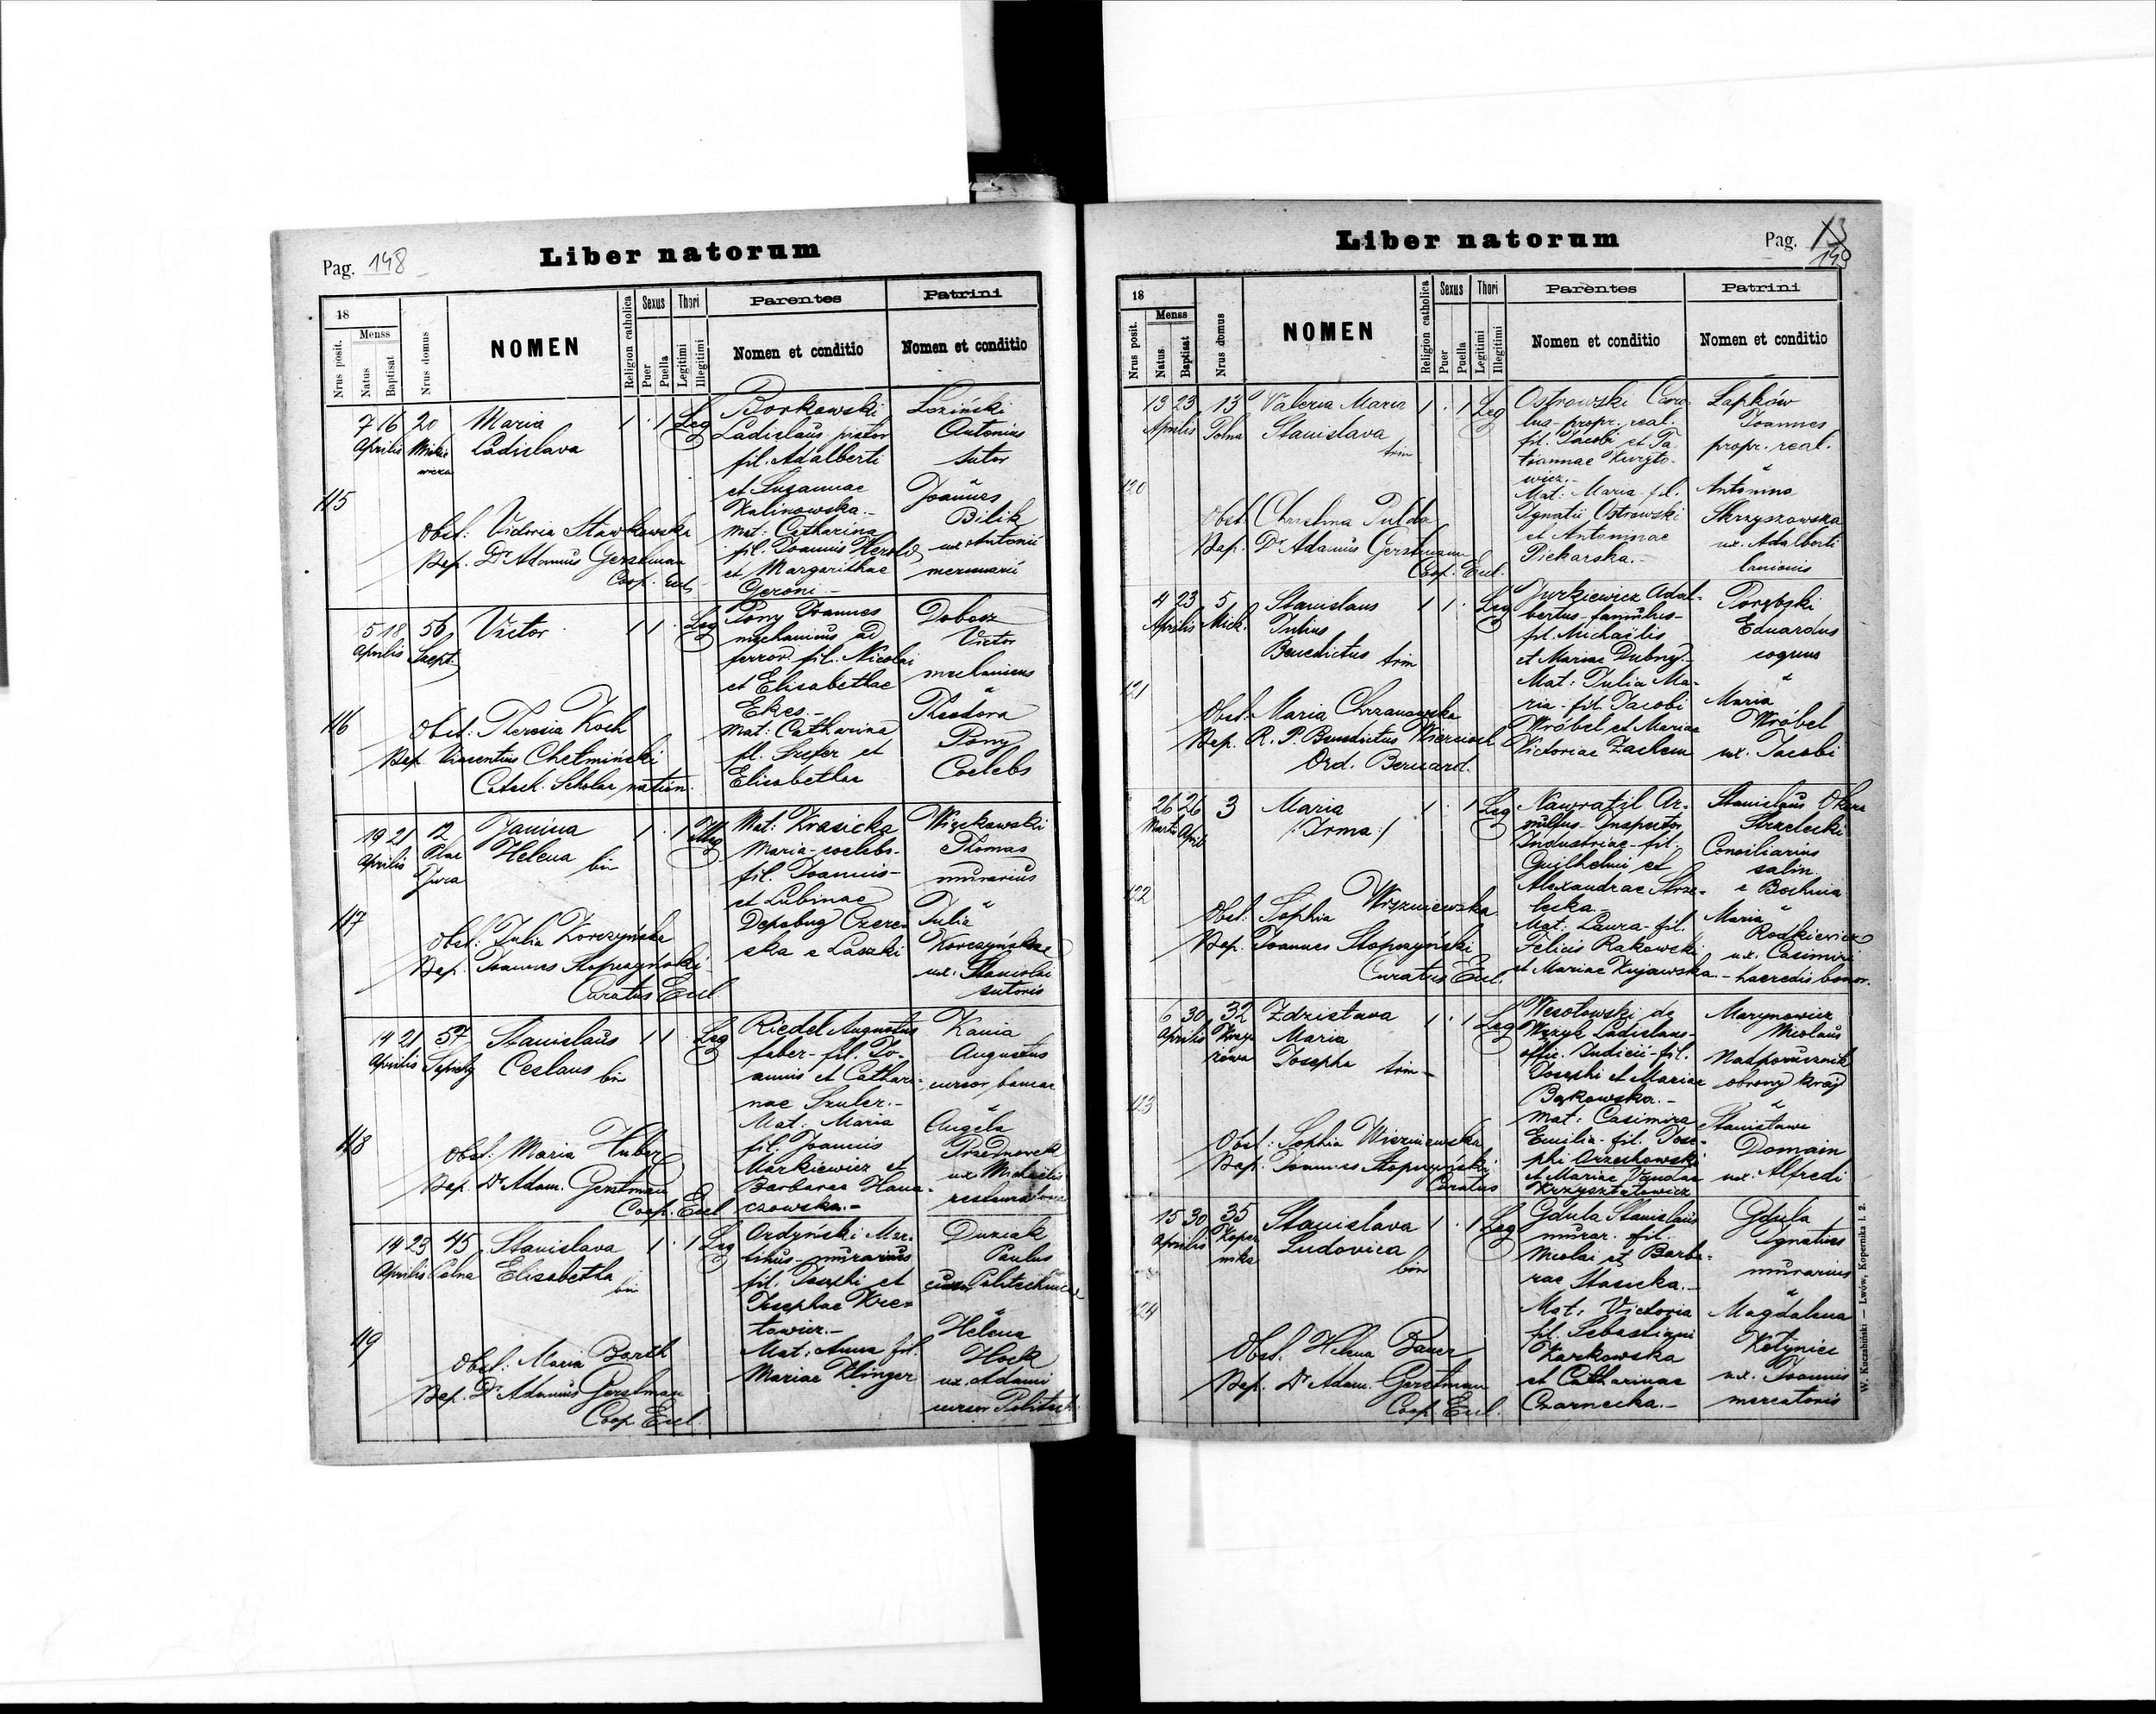 Pag. 148
Liber natorum
18
Nrus posit.
Menss
Natus
Baptisat
Nrus domus
NOMEN
Religion catholica
Sexus
Puer
Puella
Thori
Legitimi
Illegitimi
Parentes
Nomen et conditio
Patrini
Nomen et conditio
115
7 16 20
Aprilis
Maria
Ladislava
1 · 1 Leg
Obst: Victoria Stawkowska
Bap. Dr Adamus Gerstman
Coop. Eccl.
Borkowski
Ladislaus pistor
fil. Adalberti
et Susannae
Kalinowska.-
Mat: Catharina
fil. Joannis Herold
et Margarithae
Geroni.-
Loziński
Antonius
sutor
Joannes
Bilik
ux Antonii
mercenarii
116
5 18 56
Aprilis Szept.
Victor
1 1 · Leg
Obst: Theresia Koch
Bap. Vincentius Chełmiński
Catech. Scholae
Pony Joannes
mechanicus ad
ferrov. fil. Nicolai
et Elisabethae
Ekes.-
Mat: Catharina
fil. et
Elisabethae
Dobosz
Victor
mechanicus
Theodora
Pony
Coelebs
117
19 21 12
Aprilis Plac
Jura
Janina
Helena bin
1 · 1 Illeg
Obst: Julia Korczyńska
Bap. Joannes Stopczyński
Curatus Eccl
Mat: Krasicka
Maria-coelebs-
fil. Joannis-
et Lubinae
Czere-
ska e Laszki
Więckowski
Thomas
murarius
Julia
Korczyńska
ux. Stanislai
sutoris
118
14 21 57
Aprilis Sapiehy
Stanislaus
Ceslaus bin
1 1 · Leg
Obst: Maria Huber
Bap. Dr Adam. Gerstman
Coop. Eccl
Riedel Augustus
faber-fil. Jo-
annis et Cathari-
nae Szuler.-
Mat: Maria
fil. Joannis
Markiewicz et
Barbarae Hana-
czowska.-
Kania
Augustus
cursor bancae
Angela
ux Michaelis
119
14 23 45
Aprilis Polna
Stanislava
Elisabetha
bin
1 · 1 Leg
Obst: Maria Barth
Bap. Dr Adamus Gerstman
Coop. Eccl.
Ordyński Mar-
tinus-murarius
fil. Josephi et
Josephae Kre-
towicz.-
Mat: Anna fil.
Mariae Klinger
Duziak
Paulus
cursor Politechnicae
Helena
Hock
ux. Adami
cursor Politech.
Liber natorum
Pag. 13
149
18
Nrus posit.
Menss
Natus
Baptisat
Nrus domus
NOMEN
Religion catholica
Sexus
Puer
Puella
Thori
Legitimi
Illegitimi
Parentes
Nomen et conditio
Patrini
Nomen et conditio
120
13 23 13
Aprilis Polna
Valeria Maria
Stanislava
trin
1 · 1 Leg
Obst: Christina Pulda
Bap. Dr Adamus Gerstmann
Coop. Eccl.
Ostrowski Caro-
lus-propr. real.
fil. Jacobi et Ta-
tiannae Kuryło-
wicz.-
Mat: Maria-fil.
Ignatii Ostrowski
et Antoninae
Piekarska.-
Lapków
Joannes
propr. real.
Antonina
Skrzyszowska
ux. Adalberti
lanionis
121
4 23 5
Aprilis Mick.
Stanislaus
Julius
Benedictus trin
1 1 · Leg
Obst: Maria Chrzanowska
Bap. R. P. Benedictus Wiercioch
Ord. Bernard.
Jurkiewicz Adal-
bertus-famulus-
fil. Michaëlis
et Mariae Dubny.-
Mat: Julia Ma-
ria-fil. Jacobi
Wróbel et Mariae
Victoriae Zachem
Porębski
Eduardus
coquus
Maria
Wróbel
ux. Jacobi
122
26 26 3
Mart. April.
Maria
/:Irma:/
1 · 1 Leg
Obst: Sophia Wiszniewska
Bap. Joannes Stopczyński
Curatus Eccl.
Nawratil Ar-
nulfus-Inspector
Industriae-fil.
Guilhelmi et
Alexandrae Strze-
lecka.-
Mat: Laura-fil.
Felicis Rakowski
et Mariae Kujawska.-
Stanislaus
Strzelecki
Consiliarius
salin.
e Bochnia
Maria
Rodkiewicz
ux. Casimiri
haeredis bonor.
123
6 30 32
Aprilis
Zdzisława
Maria
Josepha trin-
1 · 1 Leg
Obst: Sophia Wiszniewska
Bap. Joannes Stopczyński
Curatus
Wesołowski de
Wężyk Ladislaus-
offic. Judicii-fil.
Josephi et Mariae
Bąkowska.-
Mat: Casimira
Emilia-fil. Jose-
phi Orzechowski
et Mariae Vandae
Krzyształowicz
Marynowicz
Nicolaus
Nadporucznik
obrony kraj
Stanisława
Domain
ux. Alfredi
124
15 30 35
Aprilis Koper
nika
Stanislava
Ludovica
bin
1 · 1 Leg
Obst. Helena Bauer
Bap. Dr Adam. Gerstman
Coop. Eccl.
Gdula Stanislaus
murar. fil.
Nicolai et Barba-
rae Stasicka.-
Mat: Victoria
fil. Sebastiani
Karkowska
et Catharinae
Czarnecka.-
Gdula
Ignatius
murarius
Magdalena
Kotyniec
ux. Joannis
mercatoris
W. Kuczabiński — Lwów, Kopernika l. 2.